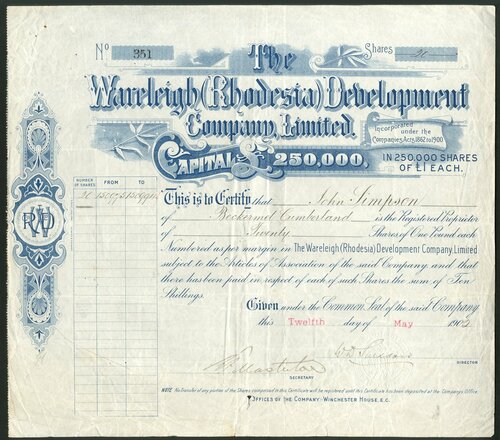 No 351
Shares 20
The
Wareleigh (Rhodesia) Development
Company, Limited.
Incorporated
under the
Companies Acts, 1862 to 1900
CAPITAL £250,000.
IN 250,000 SHARES
OF £1 EACH.
NUMBER OF SHARES FROM TO
20
This is to Certify that John Simpson
of Beckermet Cumberland is the Registered Proprietor
of Twenty Shares of One Pound each
Numbered as per margin in The Wareleigh (Rhodesia) Development Company, Limited
subject to the Articles of Association of the said Company; and that
there has been paid in respect of each of such Shares the sum of Ten
Shillings.
Given under the Common Seal of the said Company
this Twelfth day of May 1902
DIRECTOR
SECRETARY
NOTE No Transfer of any portion of the Shares comprised in this Certificate will be registered until this Certificate has been deposited at the Company's Office.
OFFICES OF THE COMPANY: WINCHESTER HOUSE, E.C.